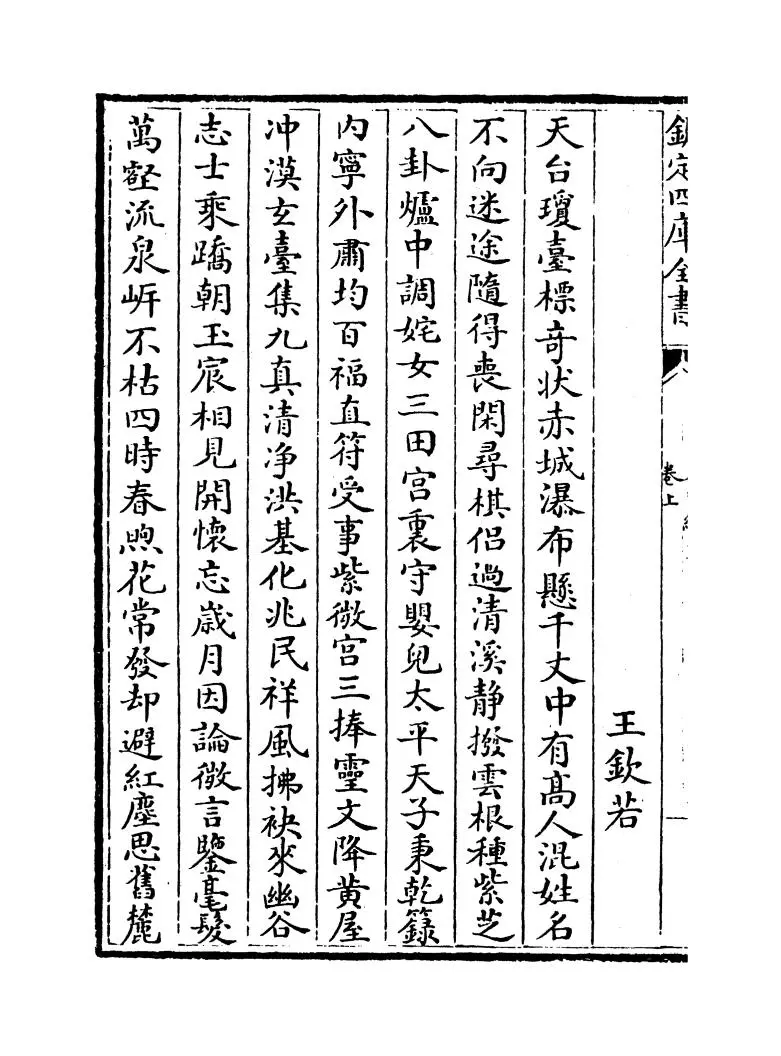 欽定四庫全書
卷上
王欽若
天台瓊臺標竒狀赤城瀑布懸千丈中有髙人混姓名
不向迷途隨得喪閑尋棋侣過清溪静撥雲根種紫芝
八卦爐中調姹女三田宫裏守嬰兒太平天子秉乾籙
内寧外肅均百福直符受事紫微宫三捧靈文降黄屋
冲漠玄臺集九真清浄洪基化兆民祥風拂袂來幽谷
志士乘蹻朝玉宸相見開懷忘歳月因論微言鑒毫髮
萬壑流泉㟁不枯四時春煦花常發却避紅塵思舊麓